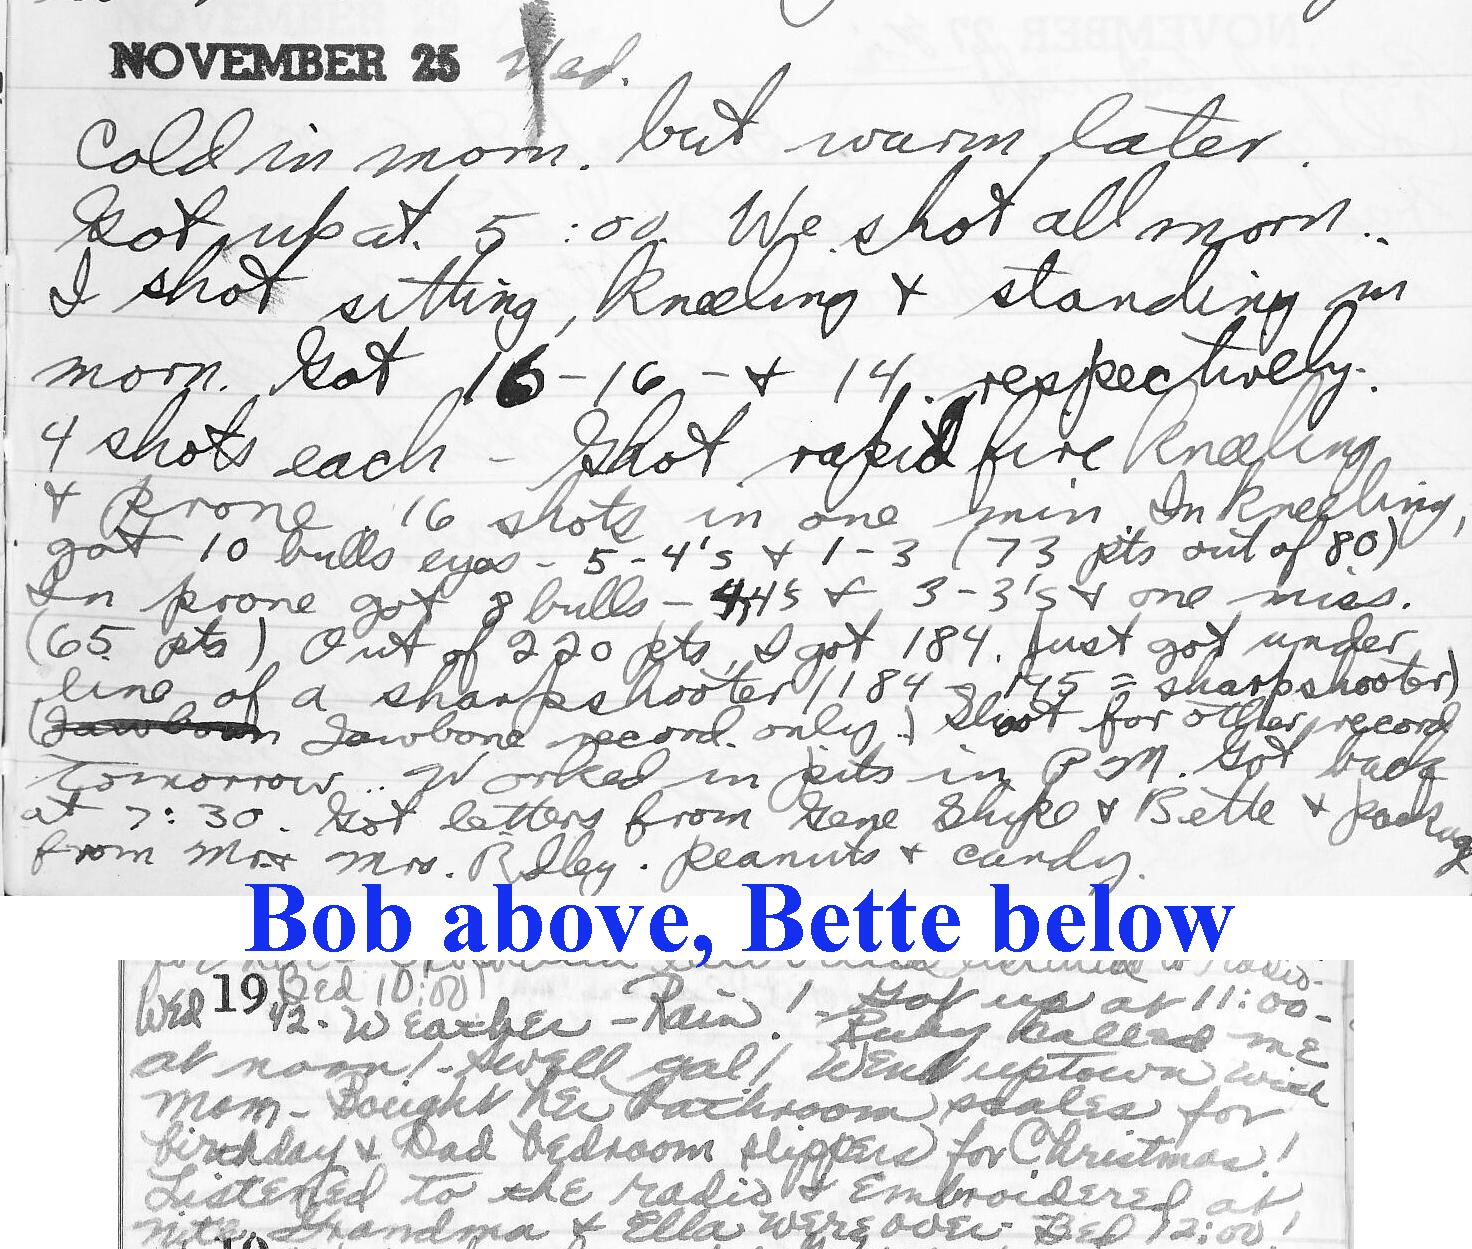 NOVEMBER 25 Wed.
Cold in morn. but warm later.
Got up at. 5:00. We shot all morn..
I shot sitting, kneeling & standing in
morn. Got 16-16-& 14. respectively.
4 shots each - Shot rapid fire kneeling
& prone. 16 shots in one min. In kneeling,
got 10 bulls eyes - 5-4's & 1-3 (73 pts out of 80)
In prone got 8 bulls - 4's & 3-3's & one miss.
(65 pts) Out of 220 pts, I got 184. Just got under
line of a sharpshooter (184 = sharpshooter)
Jawbone record only.) Shoot for other record
tomorrow.. Worked in pits in P.M. Got back
at 7:30. Got letters from Gene & Bette & package
from Mr & Mrs. Ridley. peanuts & candy.
Bob above, Bette below
19 Bed 10:00!
Wed 42 - Weather - Rain! - Got up at 11:00 -
Ruby called me
at noon! - Swell gal! Went uptown with
Mom - Bought her bathroom scales for
birthday & Dad bedroom slippers for Christmas!
Listened to the radio & Embroidered at
nite. Grandma & Ella were over - Bed 12:00!